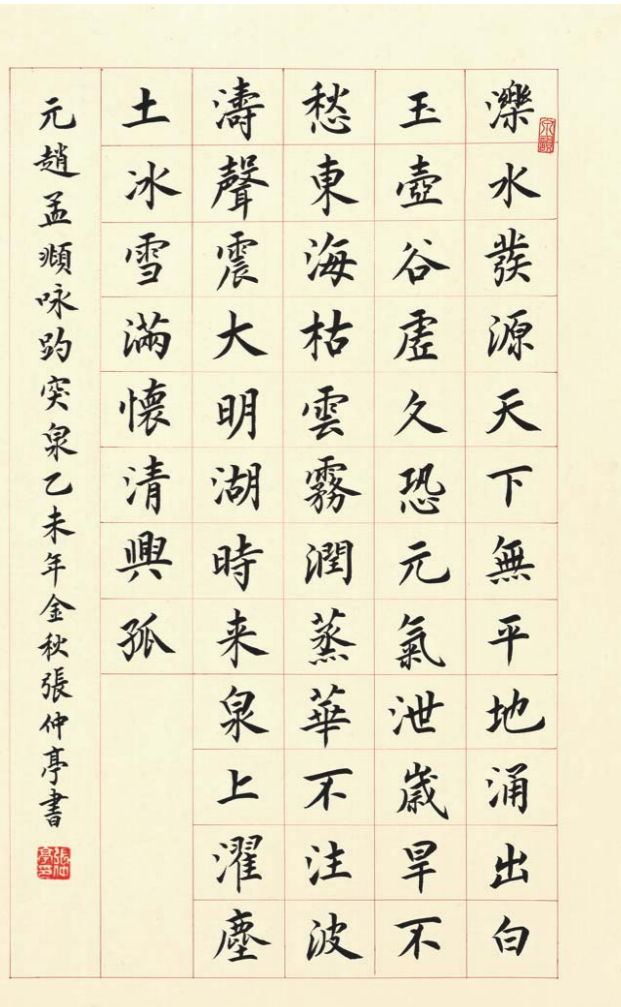 濼水發源天下無平地涌出白
玉壺谷虛久恐元氣泄歲旱不
愁東海枯雲霧潤蒸華不注波
濤聲震大明湖時来泉上濯塵
土冰雪滿懷清興孤
元趙孟頫咏趵突泉乙未年金秋張仲亭書
張仲亭印